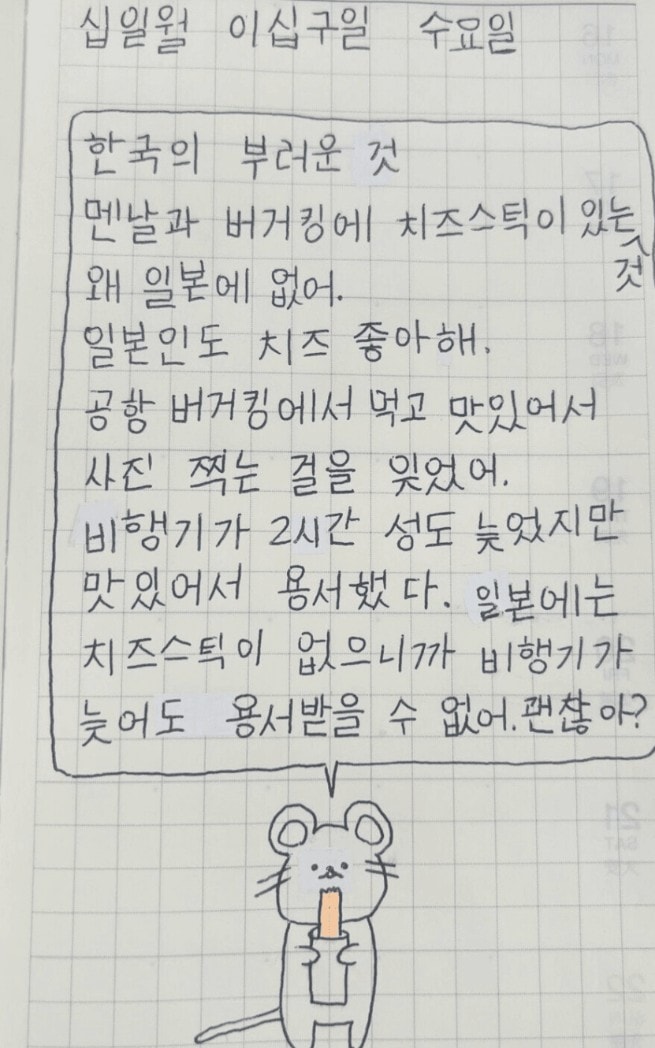 십일월 이십구일 수요일
한국의 부러운 것
멘날과 버거킹에 치즈스틱이 있는 것
왜 일본에 없어.
일본인도 치즈 좋아해.
공항 버거킹에서 먹고 맛있어서
사진 찍는 걸을 잊었어.
비행기가 2시간 성도 늦었지만
맛있어서 용서했다. 일본에는
치즈스틱이 없으니까 비행기가
늦어도 용서받을 수 없어.괜찮아?